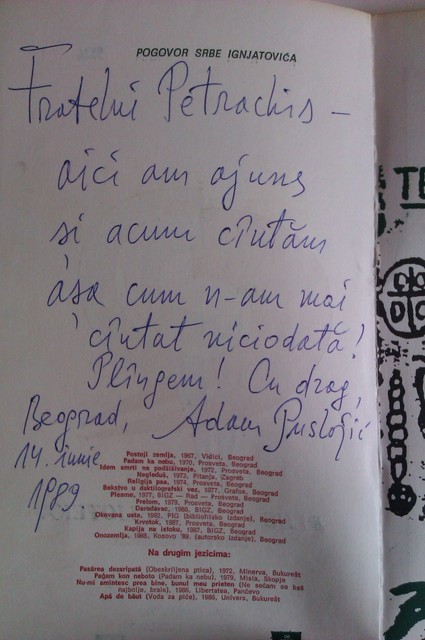 POGOVOR SRBE IGNJATOVIĆA
Fratelui Petrachis –
aici am ajuns
și acum cîntăm
așa cum n-am mai
cîntat niciodată!
Plîngem! Cu drag,
Beograd, Adam Puslojić
14. iunie
1989.
Postoji zemlja, 1967, Vidici, Beograd
Padam ka nebu, 1970, Prosveta, Beograd
Idem smrti na podšišivanje, 1972, Prosveta,
Negleduš, 1973, Pitanja, Zagreb
Religija psa, 1974, Prosveta, Beograd
Bekstvo u daktilografski vez, 1977, Grafos, Beograd
Plesme, 1977, BIGZ — Rad — Prosveta, Beograd
Prelom, 1979, Prosveta, Beograd
Darodavac, 1980, BIGZ, Beograd
Okovana usta, 1982, PIG (bibliofilsko izdanje), Beograd
Krvotok, 1987, Prosveta, Beograd
Kapija na istoku, 1987, BIGZ, Beograd
Onozemlja, 1988, Kosovo '89. (autorsko izdanje), Beograd
Na drugim jezicima:
Pasărea dezaripată (Obeskriljena ptica), 1972, Minerva, Bukurešt
Paǵam kon neboto (Padam ka nebu), 1979, Misla, Skopje
Nu-mi amintesc prea bine, bunul meu prieten (Ne sećam se baš
najbolje, brale), 1986, Libertatea, Pančevo
Apă de băut (Voda za piće), 1986, Univers, Bukurešt
TE